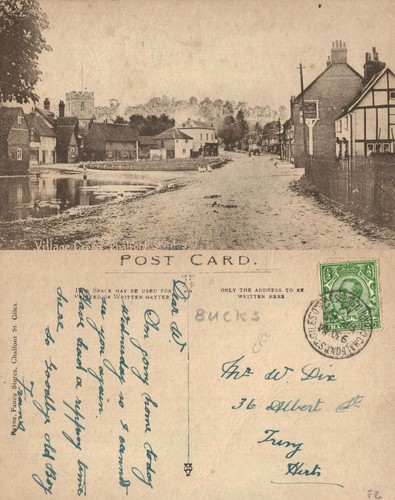 Village Green Chalfont St Giles
POST CARD.
THIS SPACE MAY BE USED FOR
PRINTED OR WRITTEN MATTER
ONLY THE ADDRESS TO BE
WRITTEN HERE
BUCKS
Payne, Fancy Stores, Chalfont St. Giles.
Dear W
I'm going home today
Wednesday so I cannot
see you again.
Have had a ripping time
here.
So Goodbye old Boy
Mr W. Dix
36 Albert St
Tring
Herts
CHALFONT ST GILES